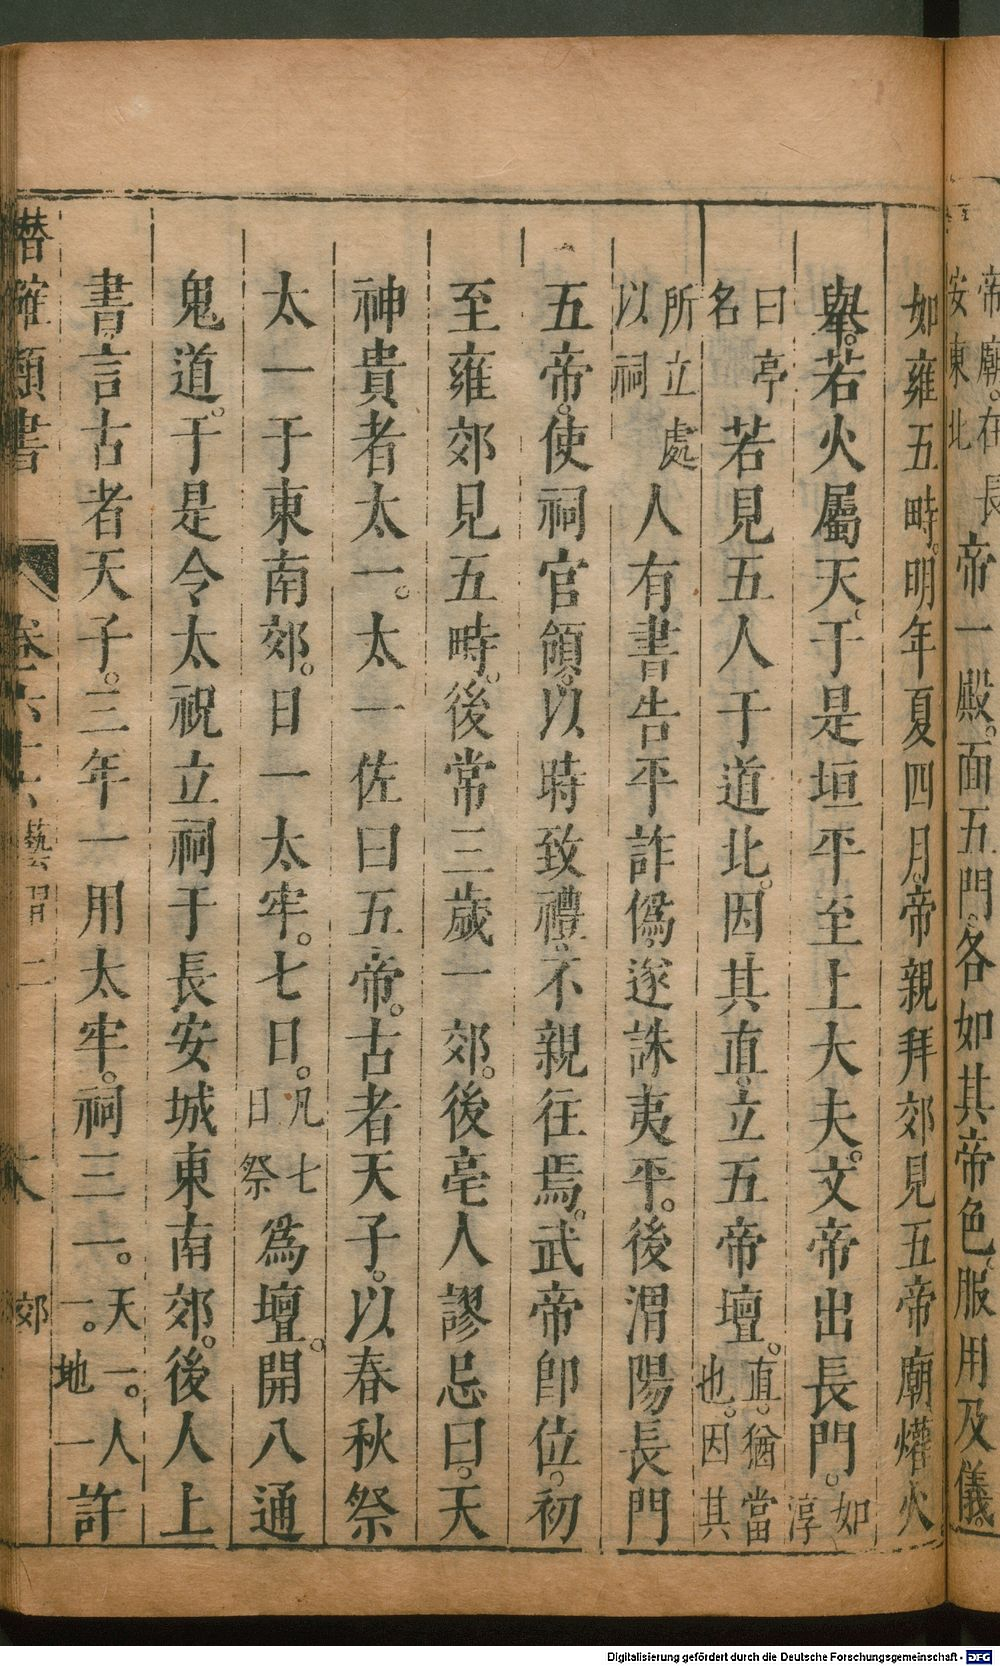 帝廟。在長安東北帝一殿。面五門。各如其帝色。服用及儀。
如雍五畤。明年夏四月。帝親拜郊見五帝廟爟火
舉。若火屬天。于是垣平至上大夫。文帝出長門。如淳
曰亭名若見五人于道北。因其直。立五帝壇。直。猶當也。因其
所立處以祠人有書告平詐僞。遂誅夷平。後渭陽長門
五帝。使祠官領。以時致禮。不親往焉。武帝卽位。初
至雍郊見五畤。後常三歲一郊。後亳人謬忌曰。天
神貴者太一。太一佐曰五帝。古者天子。以春秋祭
太一于東南郊。日一太牢。七日。凡七日祭爲壇。開八通
鬼道。于是令太祝立祠于長安城東南郊。後人上
書。言古者天子。三年一用太牢。祠三一。天一。人一。地一許
潛確類書 卷六十六 藝習二 郊 六
Digitalisierung gefördert durch die Deutsche Forschungsgemeinschaft - DFG